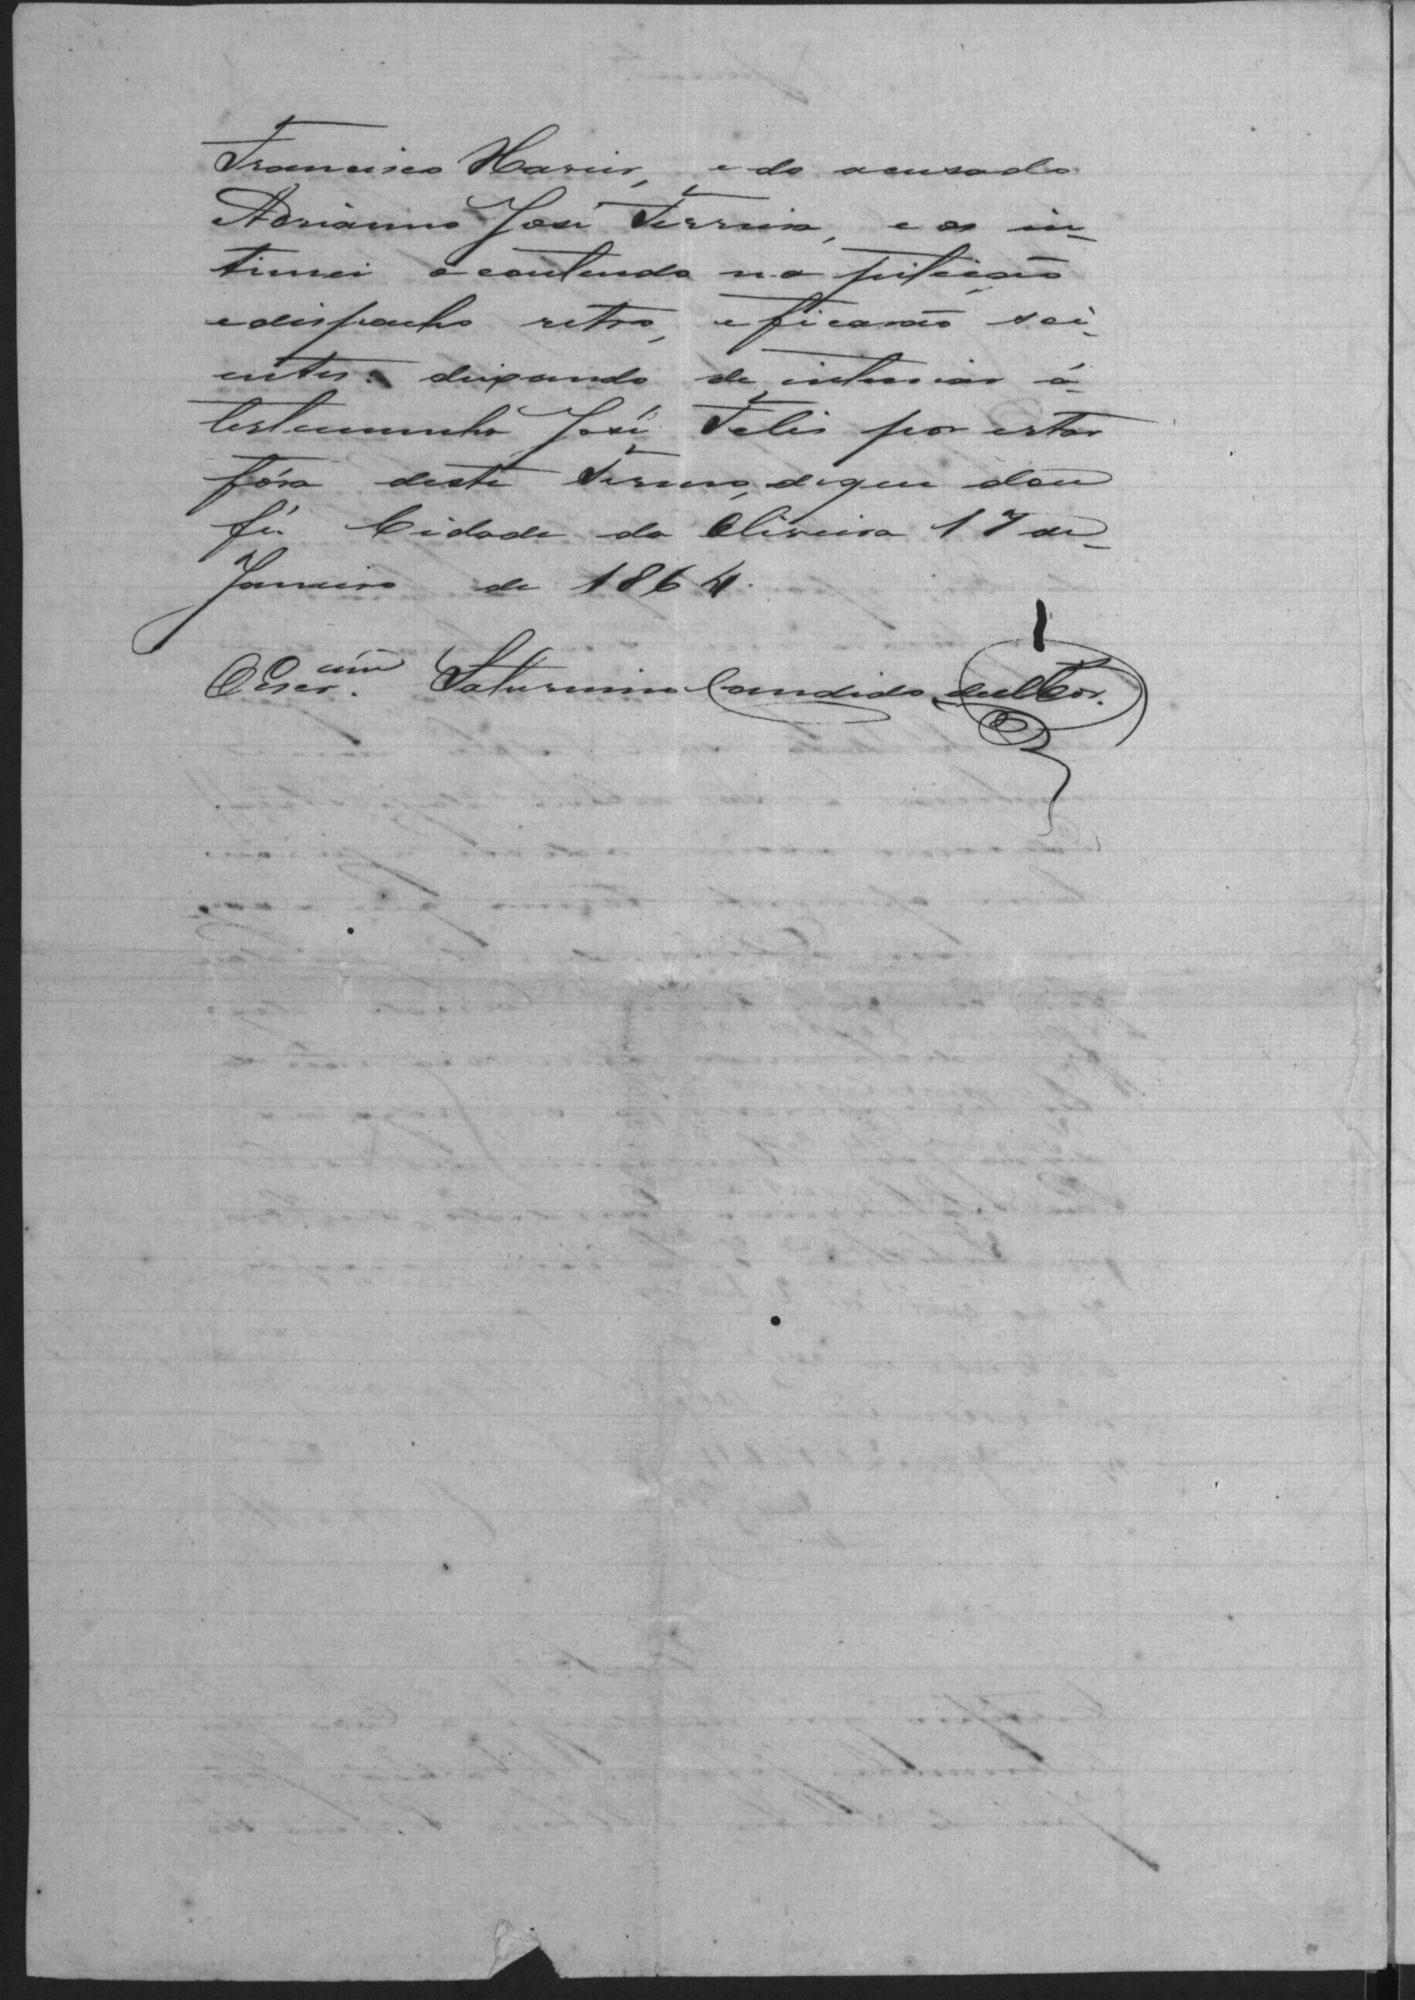 Francisco Xavier, e do acusado
Adrianno José Ferreira, e os in-
timei o contendo na petição
e dispacho retro, e ficarão sci-
entes: deixando de intimar á
testemunha José Felis por estar
fóra deste Termo, do que dou
fé. Cidade da Oliveira 17 de
Janeiro de 1864.
O Escr.am Saturnino Candido